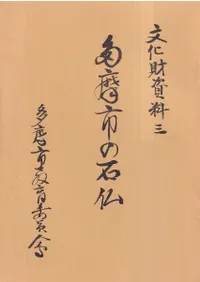 文化財資料三
多摩市の石仏
多摩市教育委員会